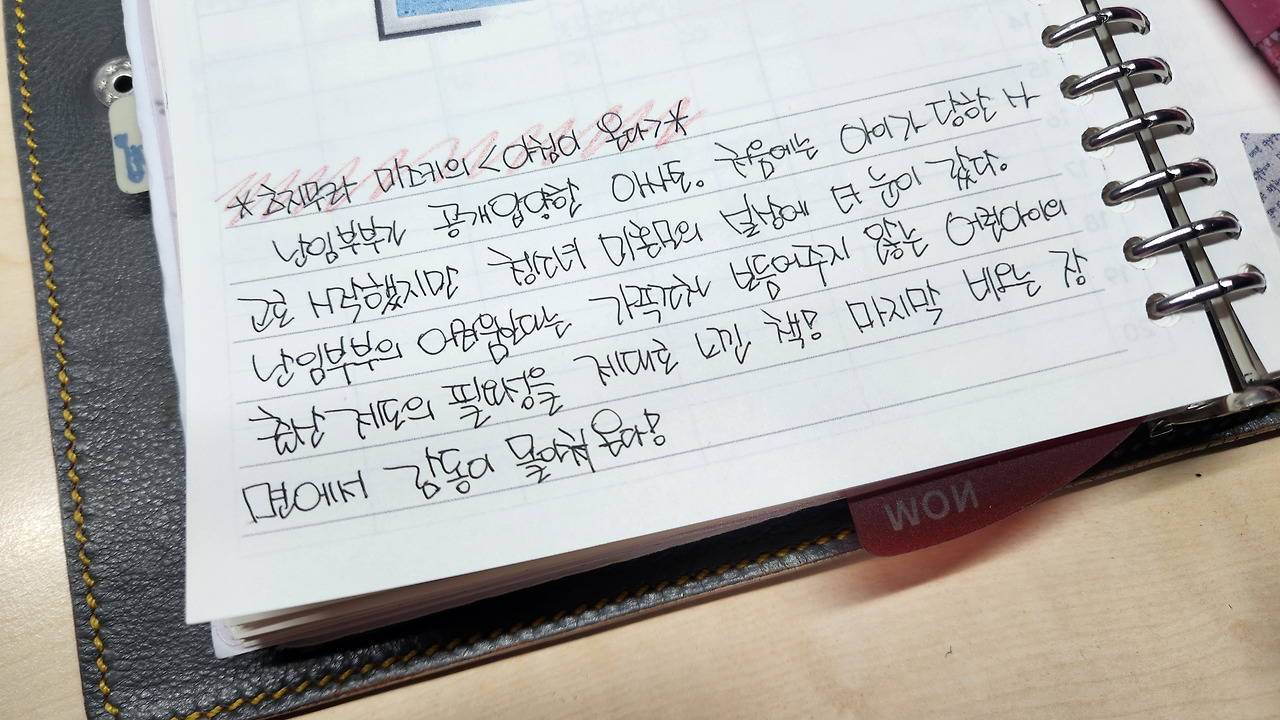 *츠지무라 미즈키의 <아침이 온다>*
난임부부가 공개입양한 아사토. 처음에는 아이가 당한 사
고로 시작했지만 미혼모의 일상에 더 눈이 갔다.
난임부부의 어려움과는 보듬어주지 않는 어린아이의
출산 필요성을 제대로 느낀 책. 마지막 장
면에서 감동이 몰아쳐 온다.
NOW